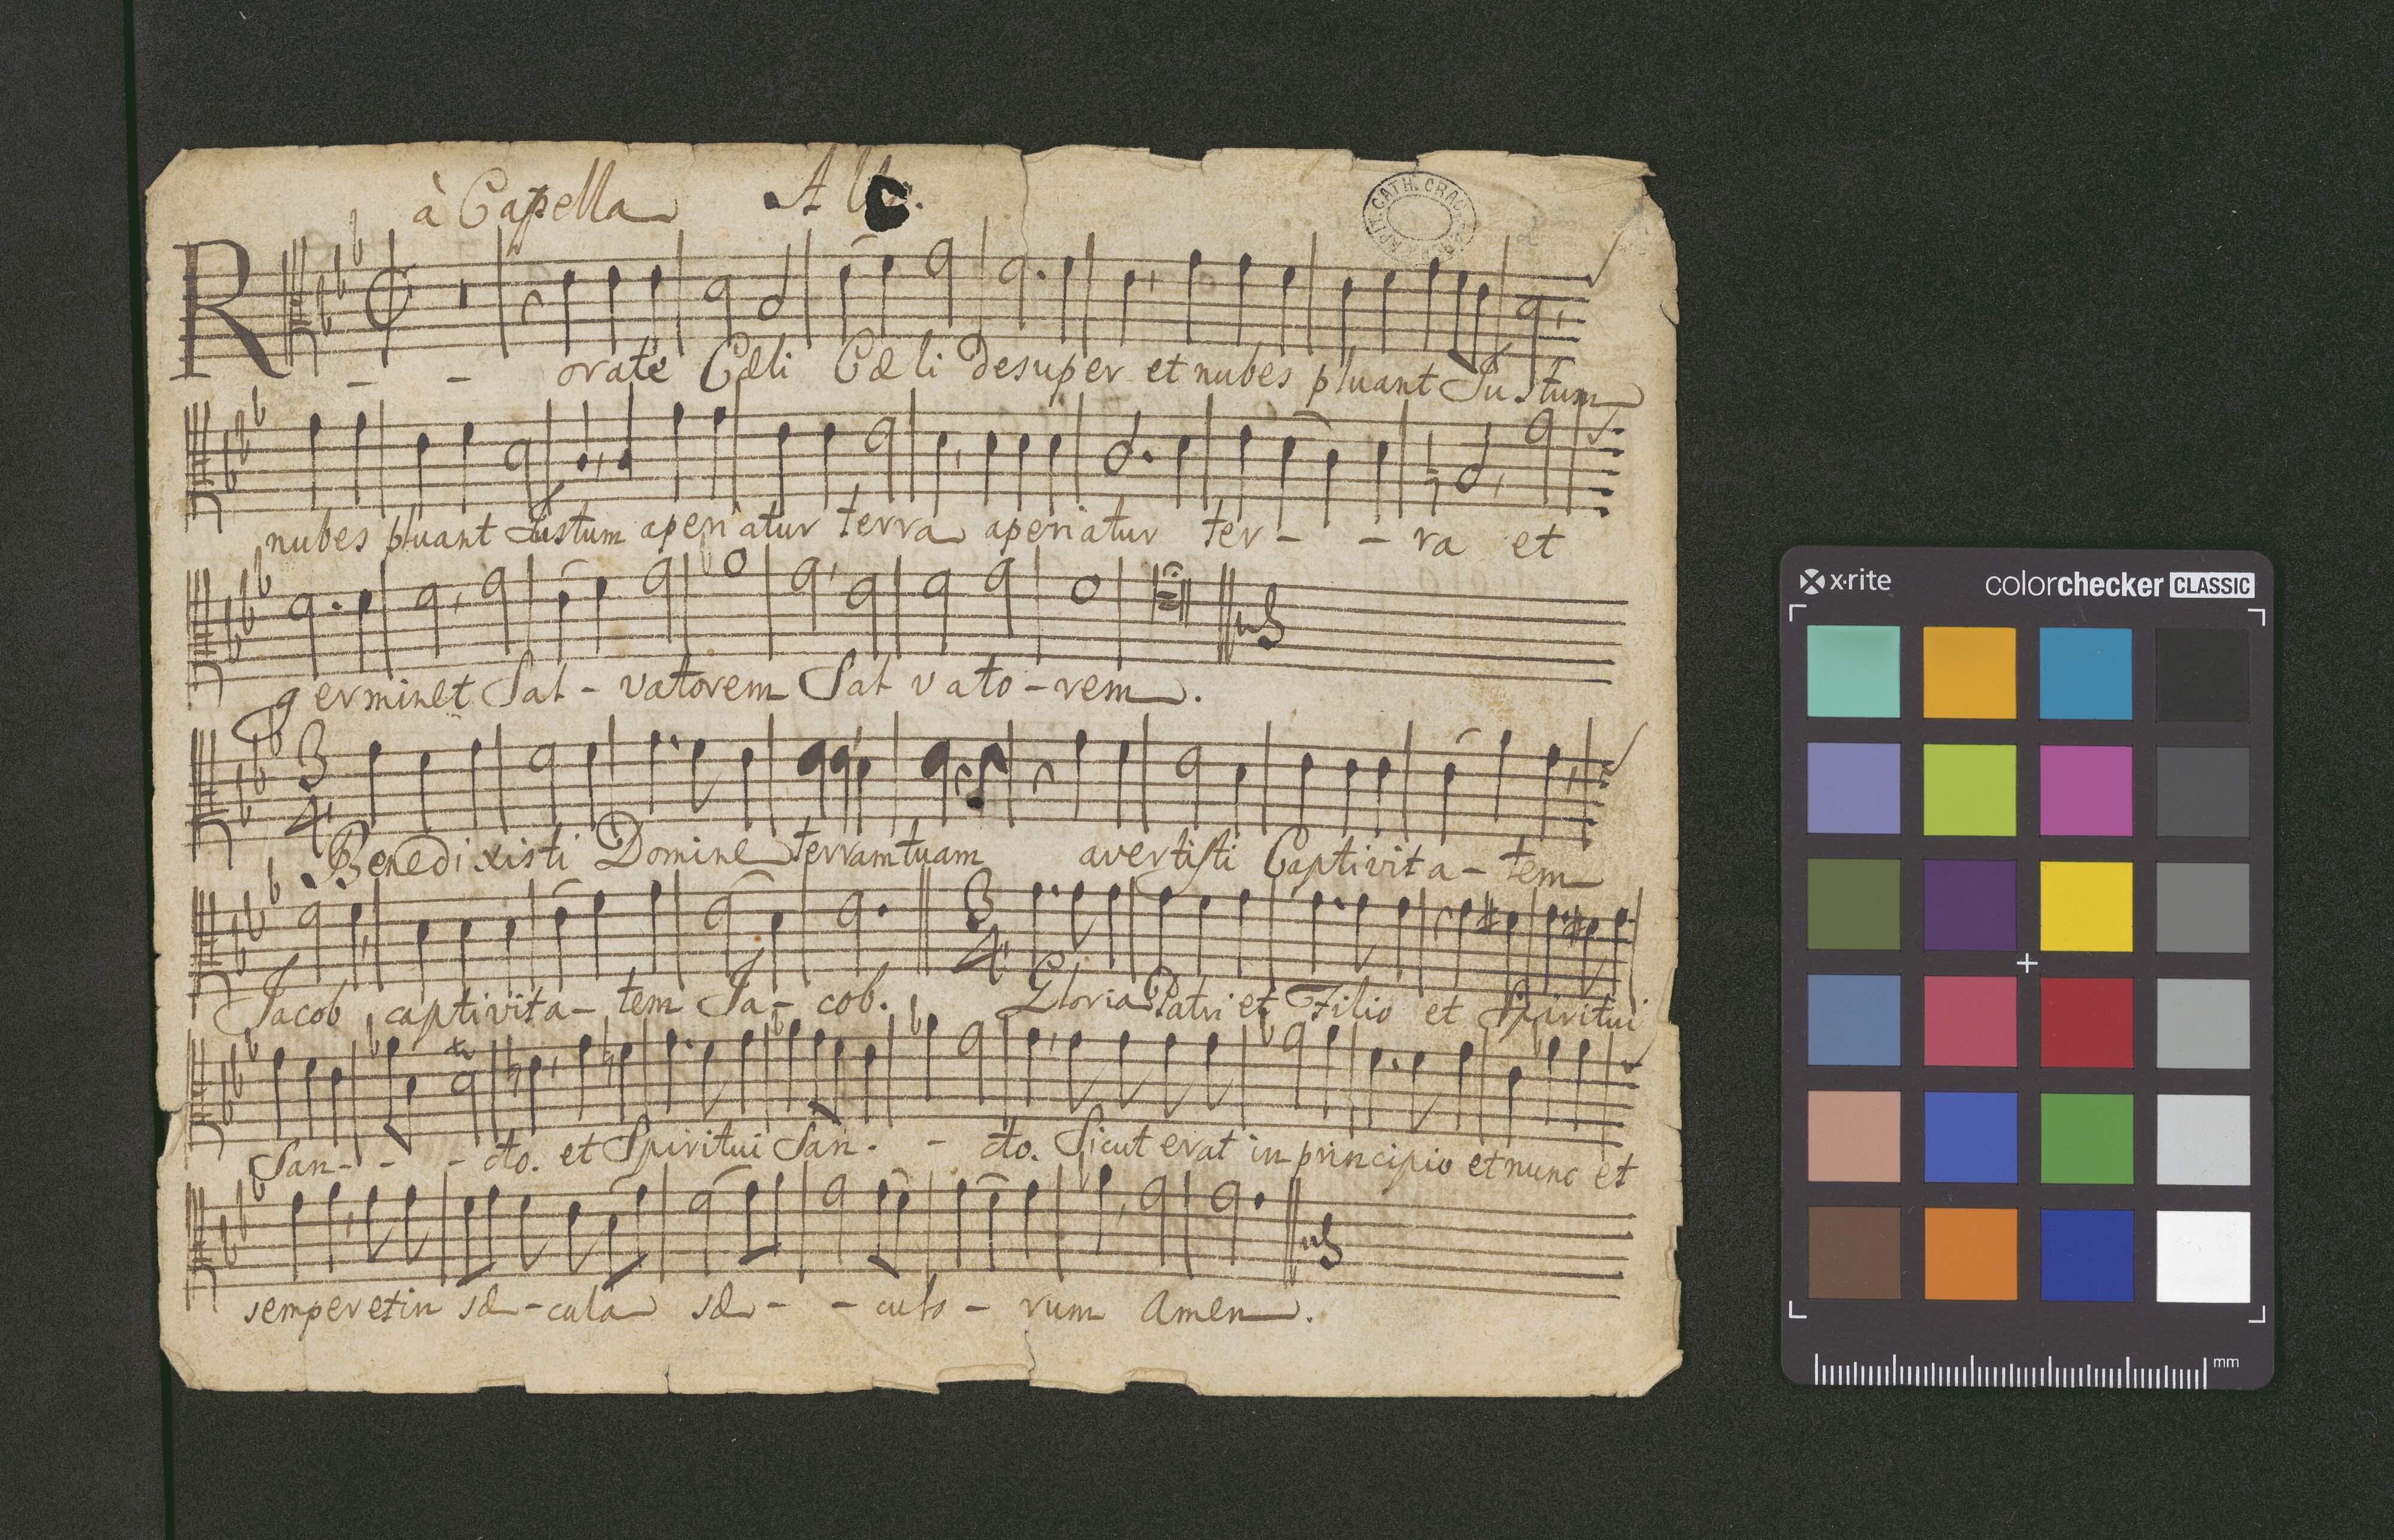 à Capella Alto.
CAPIT. CATH. CRAC.
R - - orate Cæli Cæ li Desuper et nubes pluant Justum
nubes pluant Justum aperiatur terra aperiatur ter - - ra et
germinet Sal - vatorem Sal vato - rem.
3/4
Benedixisti Domine terram tuam avertisti Captivita - tem
Jacob captivita - tem Ja - cob. 3/4 Gloria Patri et Filio et Spiritui
San - - - cto. et Spiritui San - - cto. Sicut erat in principio et nunc et
semper et in sæ - cula sæ - - culo - rum Amen.
x·rite colorchecker CLASSIC
mm